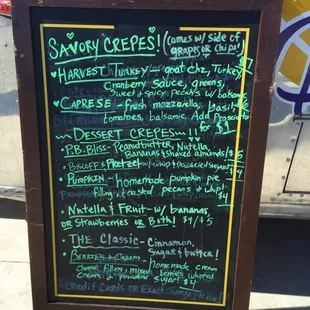 SAVORY CREPES! (comes w/ side of
grapes or chips!)
♥HARVEST TURKEY - goat chz, Turkey, $7
Cranberry Sauce, greens,
Sweet & spicy pecans w/ balsamic
♥CAPRESE - fresh mozzarella, basil,
tomatoes, balsamic Add Prosciutto
for $1
DESSERT CREPES...
P.B. Bliss - Peanutbutter, Nutella,
Bananas & shaved almonds! $5
Biscoff & Pretzel w/ whip & $4
PUMPKIN - homemade pumpkin pie
filling toasted pecans & whip!
$4
Nutella & Fruit - w/ bananas,
or Strawberries or Both! $4/$5
THE Classic - Cinnamon,
Sugar & butter!
BERRIES & CREAM - homemade cream
cheese filling, mixed berries whipped
cream & powdered sugar! $4
Credit Cards or Exact Change Please!